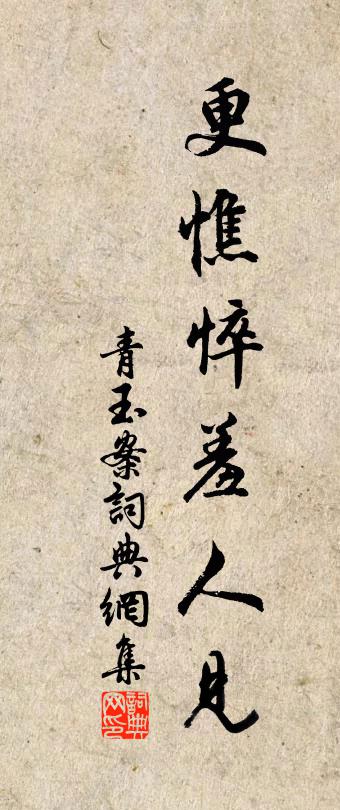 更憔悴羞人見
青玉案詞典網集
詞典網印